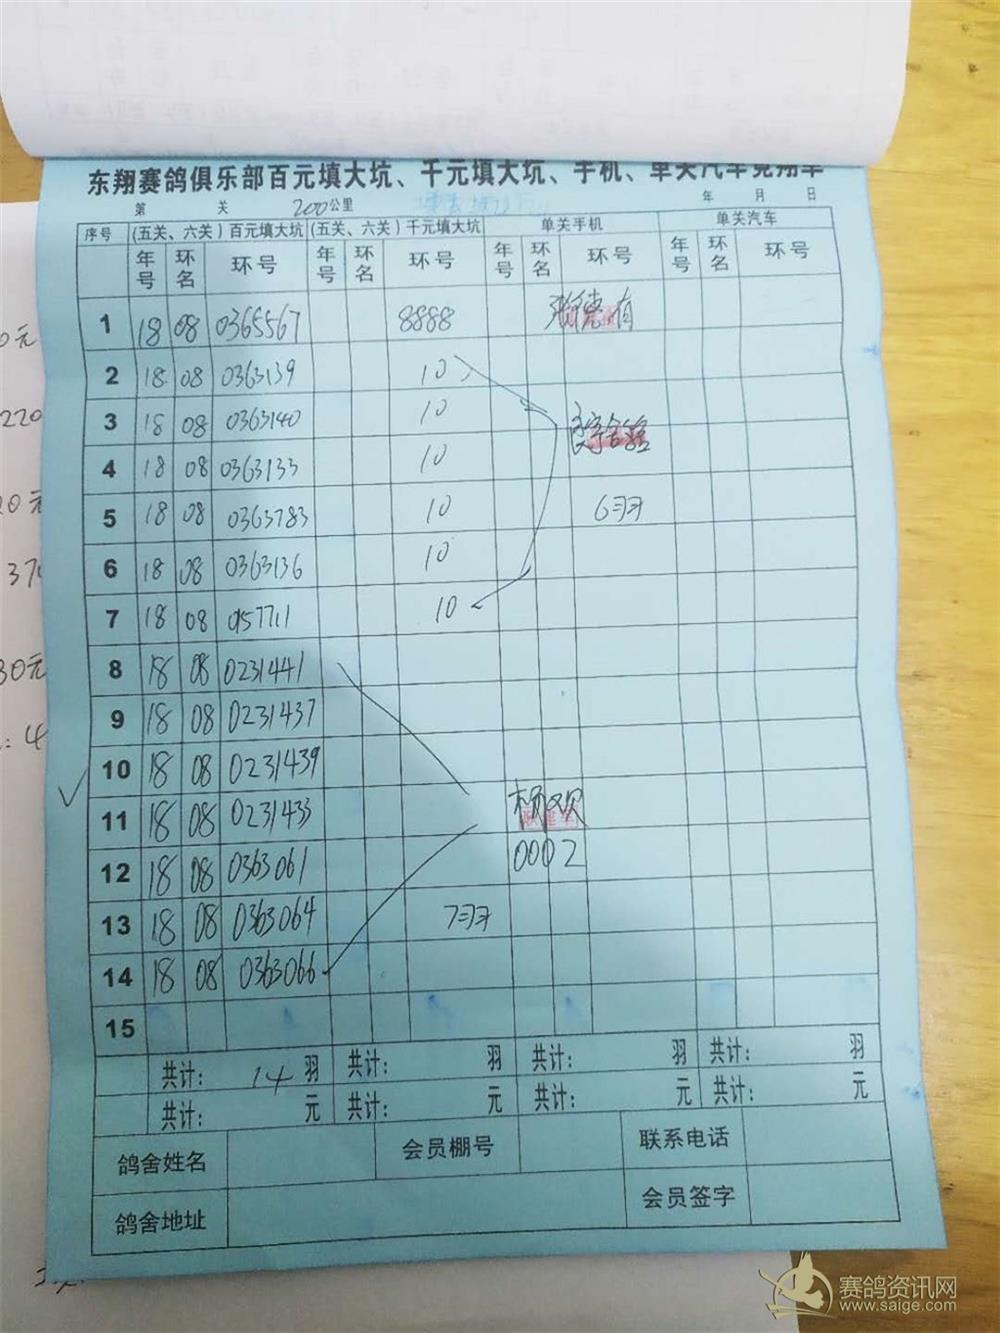 东翔赛鸽俱乐部百元填大坑、千元填大坑、手机、单关汽车竞翔单
第 关 200公里 年 月 日
序号 (五关、六关)百元填大坑 (五关、六关)千元填大坑 单关手机 单关汽车
年号 环名 环号 年号 环名 环号 年号 环名 环号 年号 环名 环号
1 18 08 0365567 8888 张德有
2 18 08 0363139 10
3 18 08 0363140 10
4 18 08 0363133 10
5 18 08 0363783 10 6羽
6 18 08 0363136 10
7 18 08 0157711 10
8 18 08 0231441
9 18 08 0231437
10 18 08 0231439
11 18 08 0231433 杨欢
12 18 08 0363061 0002
13 18 08 0363064 7羽
14 18 08 0363066
15
共计: 14 羽 共计: 羽 共计: 羽 共计: 羽
共计: 元 共计: 元 共计: 元 共计: 元
鸽舍姓名 会员棚号 联系电话
鸽舍地址 会员签字
赛鸽资讯网
www.saige.com